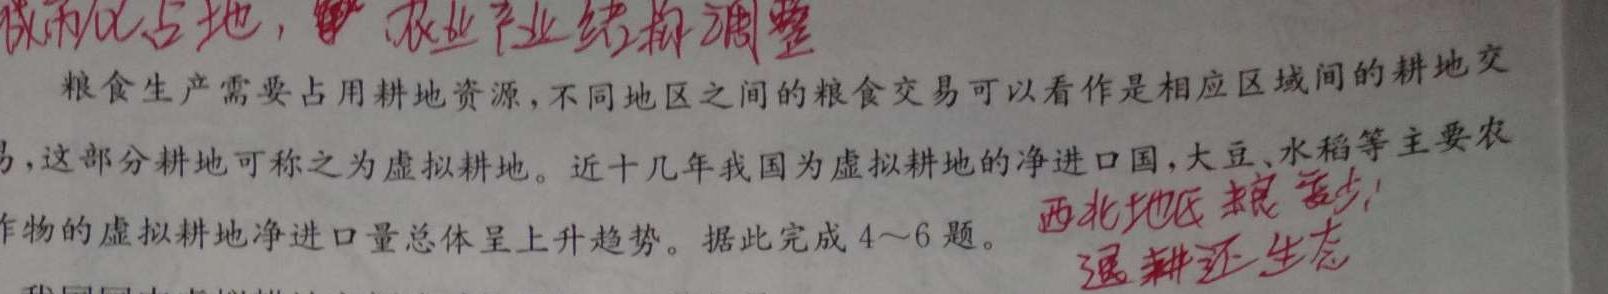 城市化占地，农业产业结构调整
粮食生产需要占用耕地资源，不同地区之间的粮食交易可以看作是相应区域间的耕地交
易，这部分耕地可称之为虚拟耕地。近十几年我国为虚拟耕地的净进口国，大豆、水稻等主要农
作物的虚拟耕地净进口量总体呈上升趋势。据此完成4～6题。
西北地区粮少，
退耕还生态